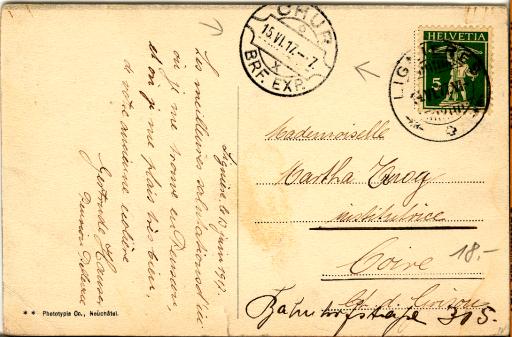 Lignières le 13 juin 1917.
Les meilleures salutations d'ici
où je me trouve en pension,
et où je me plais très bien,
de votre ancienne écolière
Gertrude
* * Phototypie Co., Neuchâtel.
CHUR
15.VI.17.-7.
BRF. EXP.
HELVETIA
5
Mademoiselle
Martha
institutrice
Coire
Ct. d. Grisons
Bahnhofstraße 305.
18.-